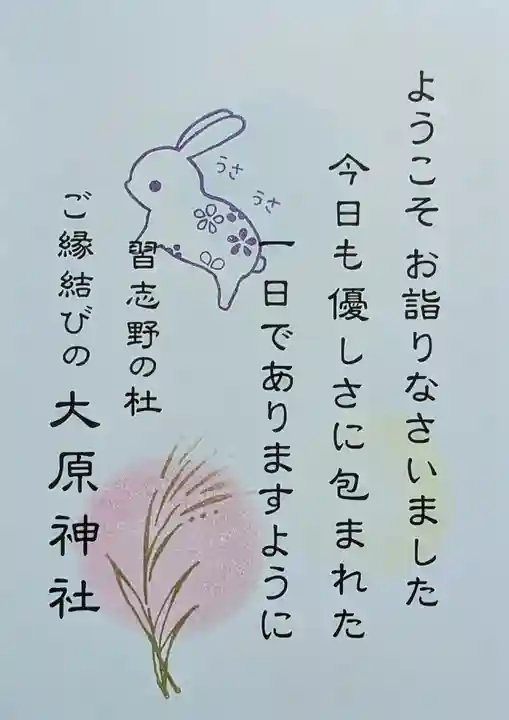 ようこそ お詣りなさいました
今日も優しさに包まれた
一日でありますように
うさ
うさ
習志野の杜
ご縁結びの 大原神社